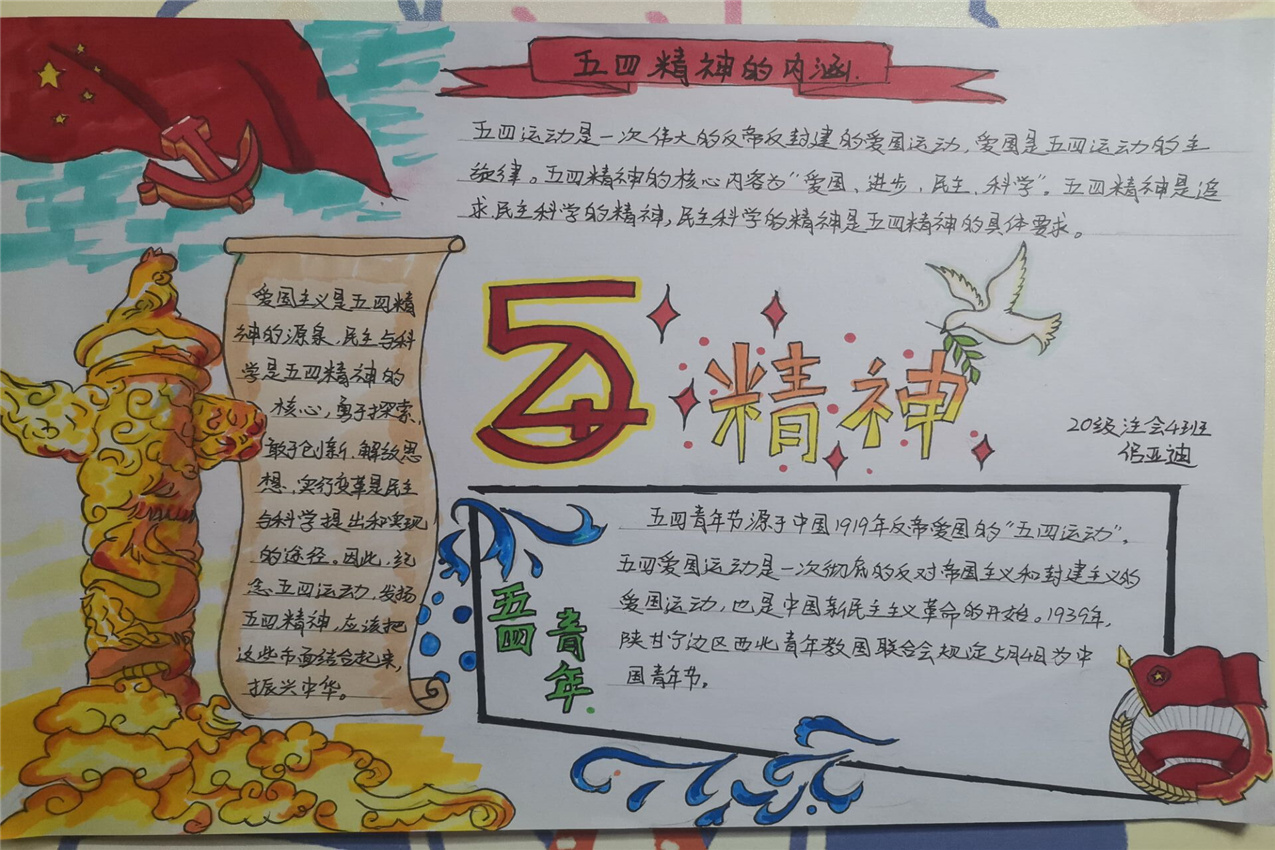 五四精神的内涵
五四运动是一次伟大的反帝反封建的爱国运动,爱国是五四运动的主
旋律。五四精神的核心内容为"爱国、进步、民主、科学"。五四精神是追
求民主科学的精神,民主科学的精神是五四精神的具体要求。
爱国主义是五四精
神的源泉,民主与科
学是五四精神的
核心,勇于探索,
敢于创新、解放思
想、实行变革是民主
与科学提出和实现
的途径。因此,纪
念五四运动,发扬
五四精神,应该把
这些方面结合起来,
振兴中华。
54
精神
20级注会4班
侣亚迪
五四
青年
五四青年节源于中国1919年反帝爱国的"五四运动",
五四爱国运动是一次彻底的反对帝国主义和封建主义的
爱国运动,也是中国新民主主义革命的开始。1939年,
陕甘宁边区西北青年救国联合会规定5月4日为中
国青年节。